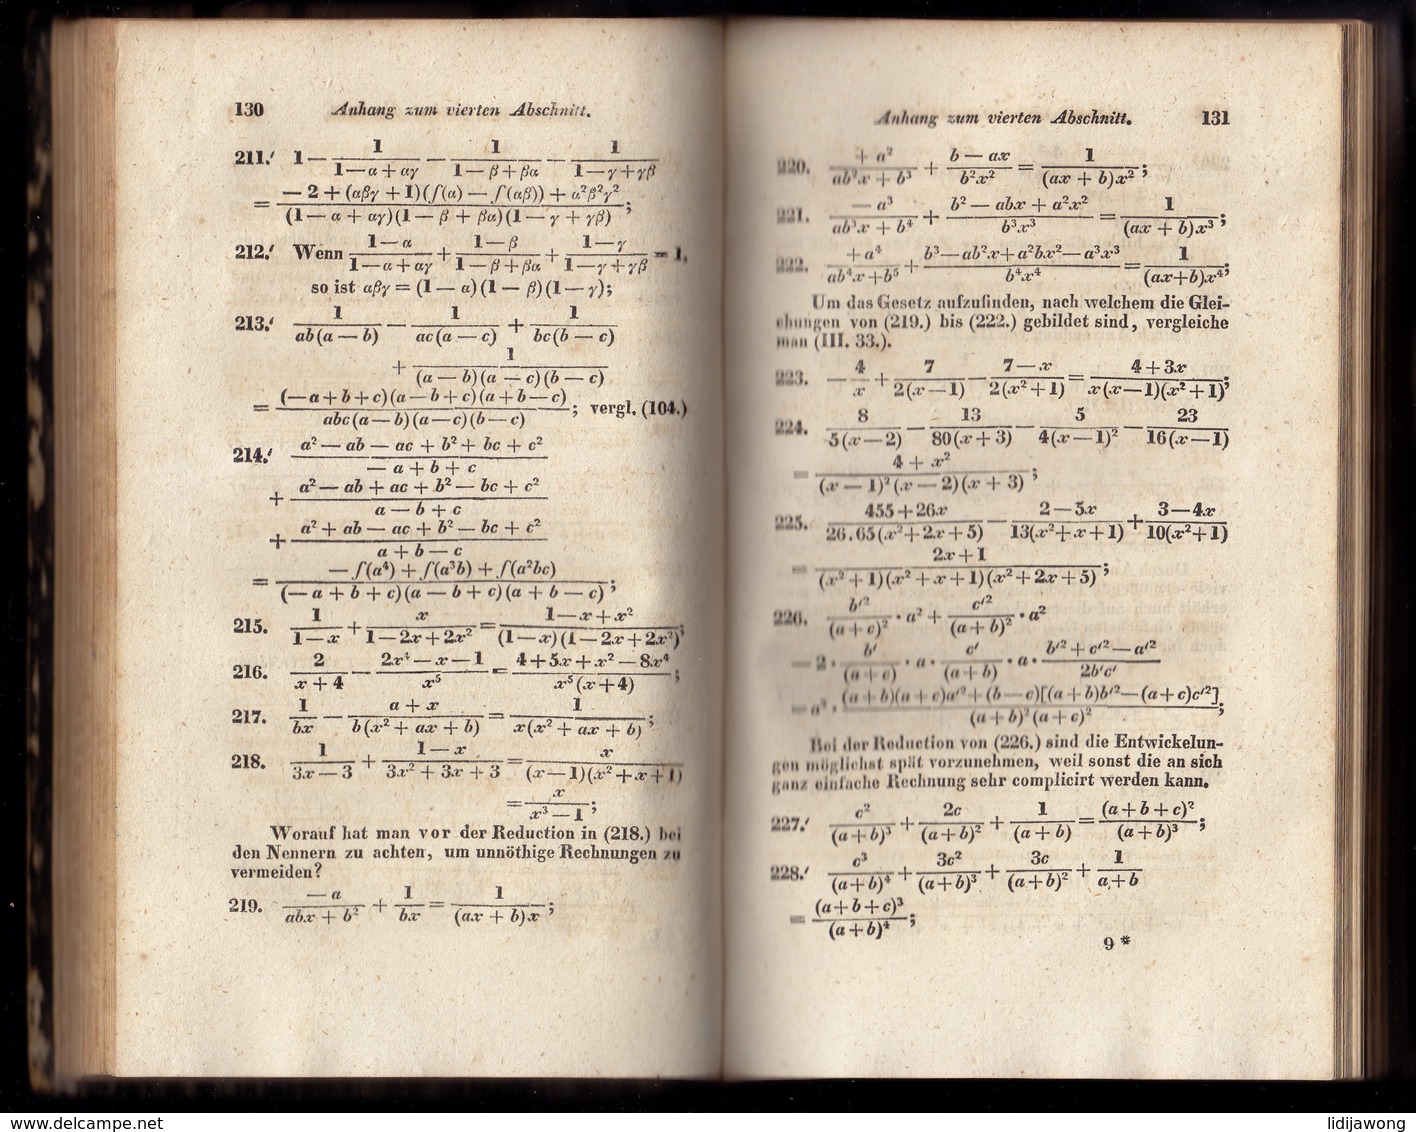 130 Anhang zum vierten Abschnitt.
211.′ 1 — 1/(1—α+αγ) — 1/(1—β+βα) — 1/(1—γ+γβ)
= (—2+(αβγ+1)(∫(α)—∫(αβ))+α²β²γ²)/((1—α+αγ)(1—β+βα)(1—γ+γβ));
212.′ Wenn (1—α)/(1—α+αγ) + (1—β)/(1—β+βα) + (1—γ)/(1—γ+γβ) = 1,
so ist αβγ = (1—α)(1—β)(1—γ);
213.′ 1/(ab(a—b)) — 1/(ac(a—c)) + 1/(bc(b—c))
+ 1/((a—b)(a—c)(b—c))
= ((—a+b+c)(a—b+c)(a+b—c))/(abc(a—b)(a—c)(b—c)); vergl. (104.)
214.′ (a²—ab—ac+b²+bc+c²)/(—a+b+c)
+ (a²—ab+ac+b²—bc+c²)/(a—b+c)
+ (a²+ab—ac+b²—bc+c²)/(a+b—c)
= (—∫(a⁴)+∫(a³b)+∫(a²bc))/((—a+b+c)(a—b+c)(a+b—c));
215. 1/(1—x) + x/(1—2x+2x²) = (1—x+x²)/((1—x)(1—2x+2x²));
216. 2/(x+4) — (2x⁴—x—1)/x⁵ = (4+5x+x²—8x⁴)/(x⁵(x+4));
217. 1/(bx) — (a+x)/(b(x²+ax+b)) = 1/(x(x²+ax+b));
218. 1/(3x—3) + (1—x)/(3x²+3x+3) = x/((x—1)(x²+x+1))
= x/(x³—1);
Worauf hat man vor der Reduction in (218.) bei
den Nennern zu achten, um unnöthige Rechnungen zu
vermeiden?
219. (—a)/(abx+b²) + 1/(bx) = 1/((ax+b)x);
Anhang zum vierten Abschnitt. 131
220. (+a²)/(ab²x+b³) + (b—ax)/(b²x²) = 1/((ax+b)x²);
221. (—a³)/(ab³x+b⁴) + (b²—abx+a²x²)/(b³x³) = 1/((ax+b)x³);
222. (+a⁴)/(ab⁴x+b⁵) + (b³—ab²x+a²bx²—a³x³)/(b⁴x⁴) = 1/((ax+b)x⁴);
Um das Gesetz aufzufinden, nach welchem die Glei-
chungen von (219.) bis (222.) gebildet sind, vergleiche
man (III. 33.).
223. —4/x + 7/(2(x—1)) — (7—x)/(2(x²+1)) = (4+3x)/(x(x—1)(x²+1));
224. 8/(5(x—2)) — 13/(80(x+3)) — 5/(4(x—1)²) — 23/(16(x—1))
= (4+x²)/((x—1)²(x—2)(x+3));
225. (455+26x)/(26.65(x²+2x+5)) — (2—5x)/(13(x²+x+1)) + (3—4x)/(10(x²+1))
= (2x+1)/((x²+1)(x²+x+1)(x²+2x+5));
226. b′²/(a+c)² · a² + c′²/(a+b)² · a²
—2 · b′/(a+c) · a · c′/(a+b) · a · (b′²+c′²—a′²)/(2b′c′)
= a² · ((a+b)(a+c)a′²+(b—c)[(a+b)b′²—(a+c)c′²])/((a+b)²(a+c)²);
Bei der Reduction von (226.) sind die Entwickelun-
gen möglichst spät vorzunehmen, weil sonst die an sich
ganz einfache Rechnung sehr complicirt werden kann.
227.′ c²/(a+b)³ + 2c/(a+b)² + 1/(a+b) = (a+b+c)²/(a+b)³;
228.′ c³/(a+b)⁴ + 3c²/(a+b)³ + 3c/(a+b)² + 1/(a+b)
= (a+b+c)³/(a+b)⁴;
9 *
delcampe.net
lidijawong